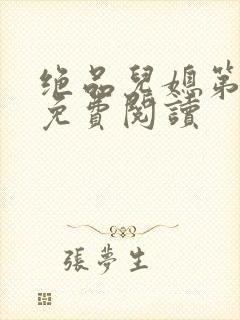 绝品兒媳第
免費閱讀
張夢生